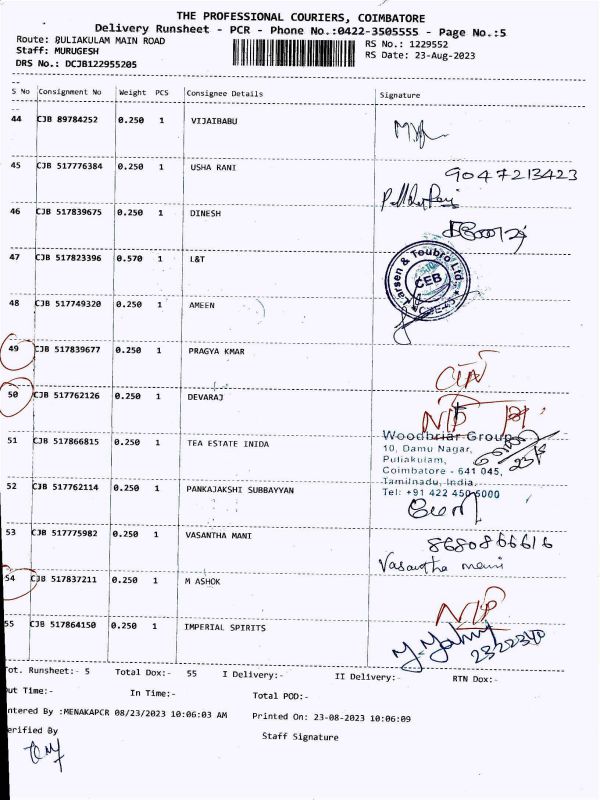 THE PROFESSIONAL COURIERS, COIMBATORE
Delivery Runsheet - PCR - Phone No.:0422-3505555 - Page No.:5
Route: PULIAKULAM MAIN ROAD RS No.: 1229552
Staff: MURUGESH RS Date: 23-Aug-2023
DRS No.: DCJB122955205
S No Consignment No Weight PCS Consignee Details Signature
44 CJB 89784252 0.250 1 VIJAIBABU
45 CJB 517776384 0.250 1 USHA RANI 9047213423
46 CJB 517839675 0.250 1 DINESH
47 CJB 517823396 0.570 1 L&T Larsen & Toubro Ltd. CEB
48 CJB 517749320 0.250 1 AMEEN
49 CJB 517839677 0.250 1 PRAGYA KMAR
50 CJB 517762126 0.250 1 DEVARAJ N/P
51 CJB 517866815 0.250 1 TEA ESTATE INIDA Woodbriar Group
10, Damu Nagar,
Puliakulam,
Coimbatore - 641 045,
Tamilnadu, India.
Tel: +91 422 450 5000
52 CJB 517762114 0.250 1 PANKAJAKSHI SUBBAYYAN
53 CJB 517775982 0.250 1 VASANTHA MANI 8680866616
Vasantha mani
54 CJB 517837211 0.250 1 M ASHOK N/P
55 CJB 517864150 0.250 1 IMPERIAL SPIRITS 2322340
Tot. Runsheet:- 5 Total Dox:- 55 I Delivery:- II Delivery:- RTN Dox:-
Out Time:- In Time:- Total POD:-
Entered By :MENAKAPCR 08/23/2023 10:06:03 AM Printed On: 23-08-2023 10:06:09
Verified By Staff Signature